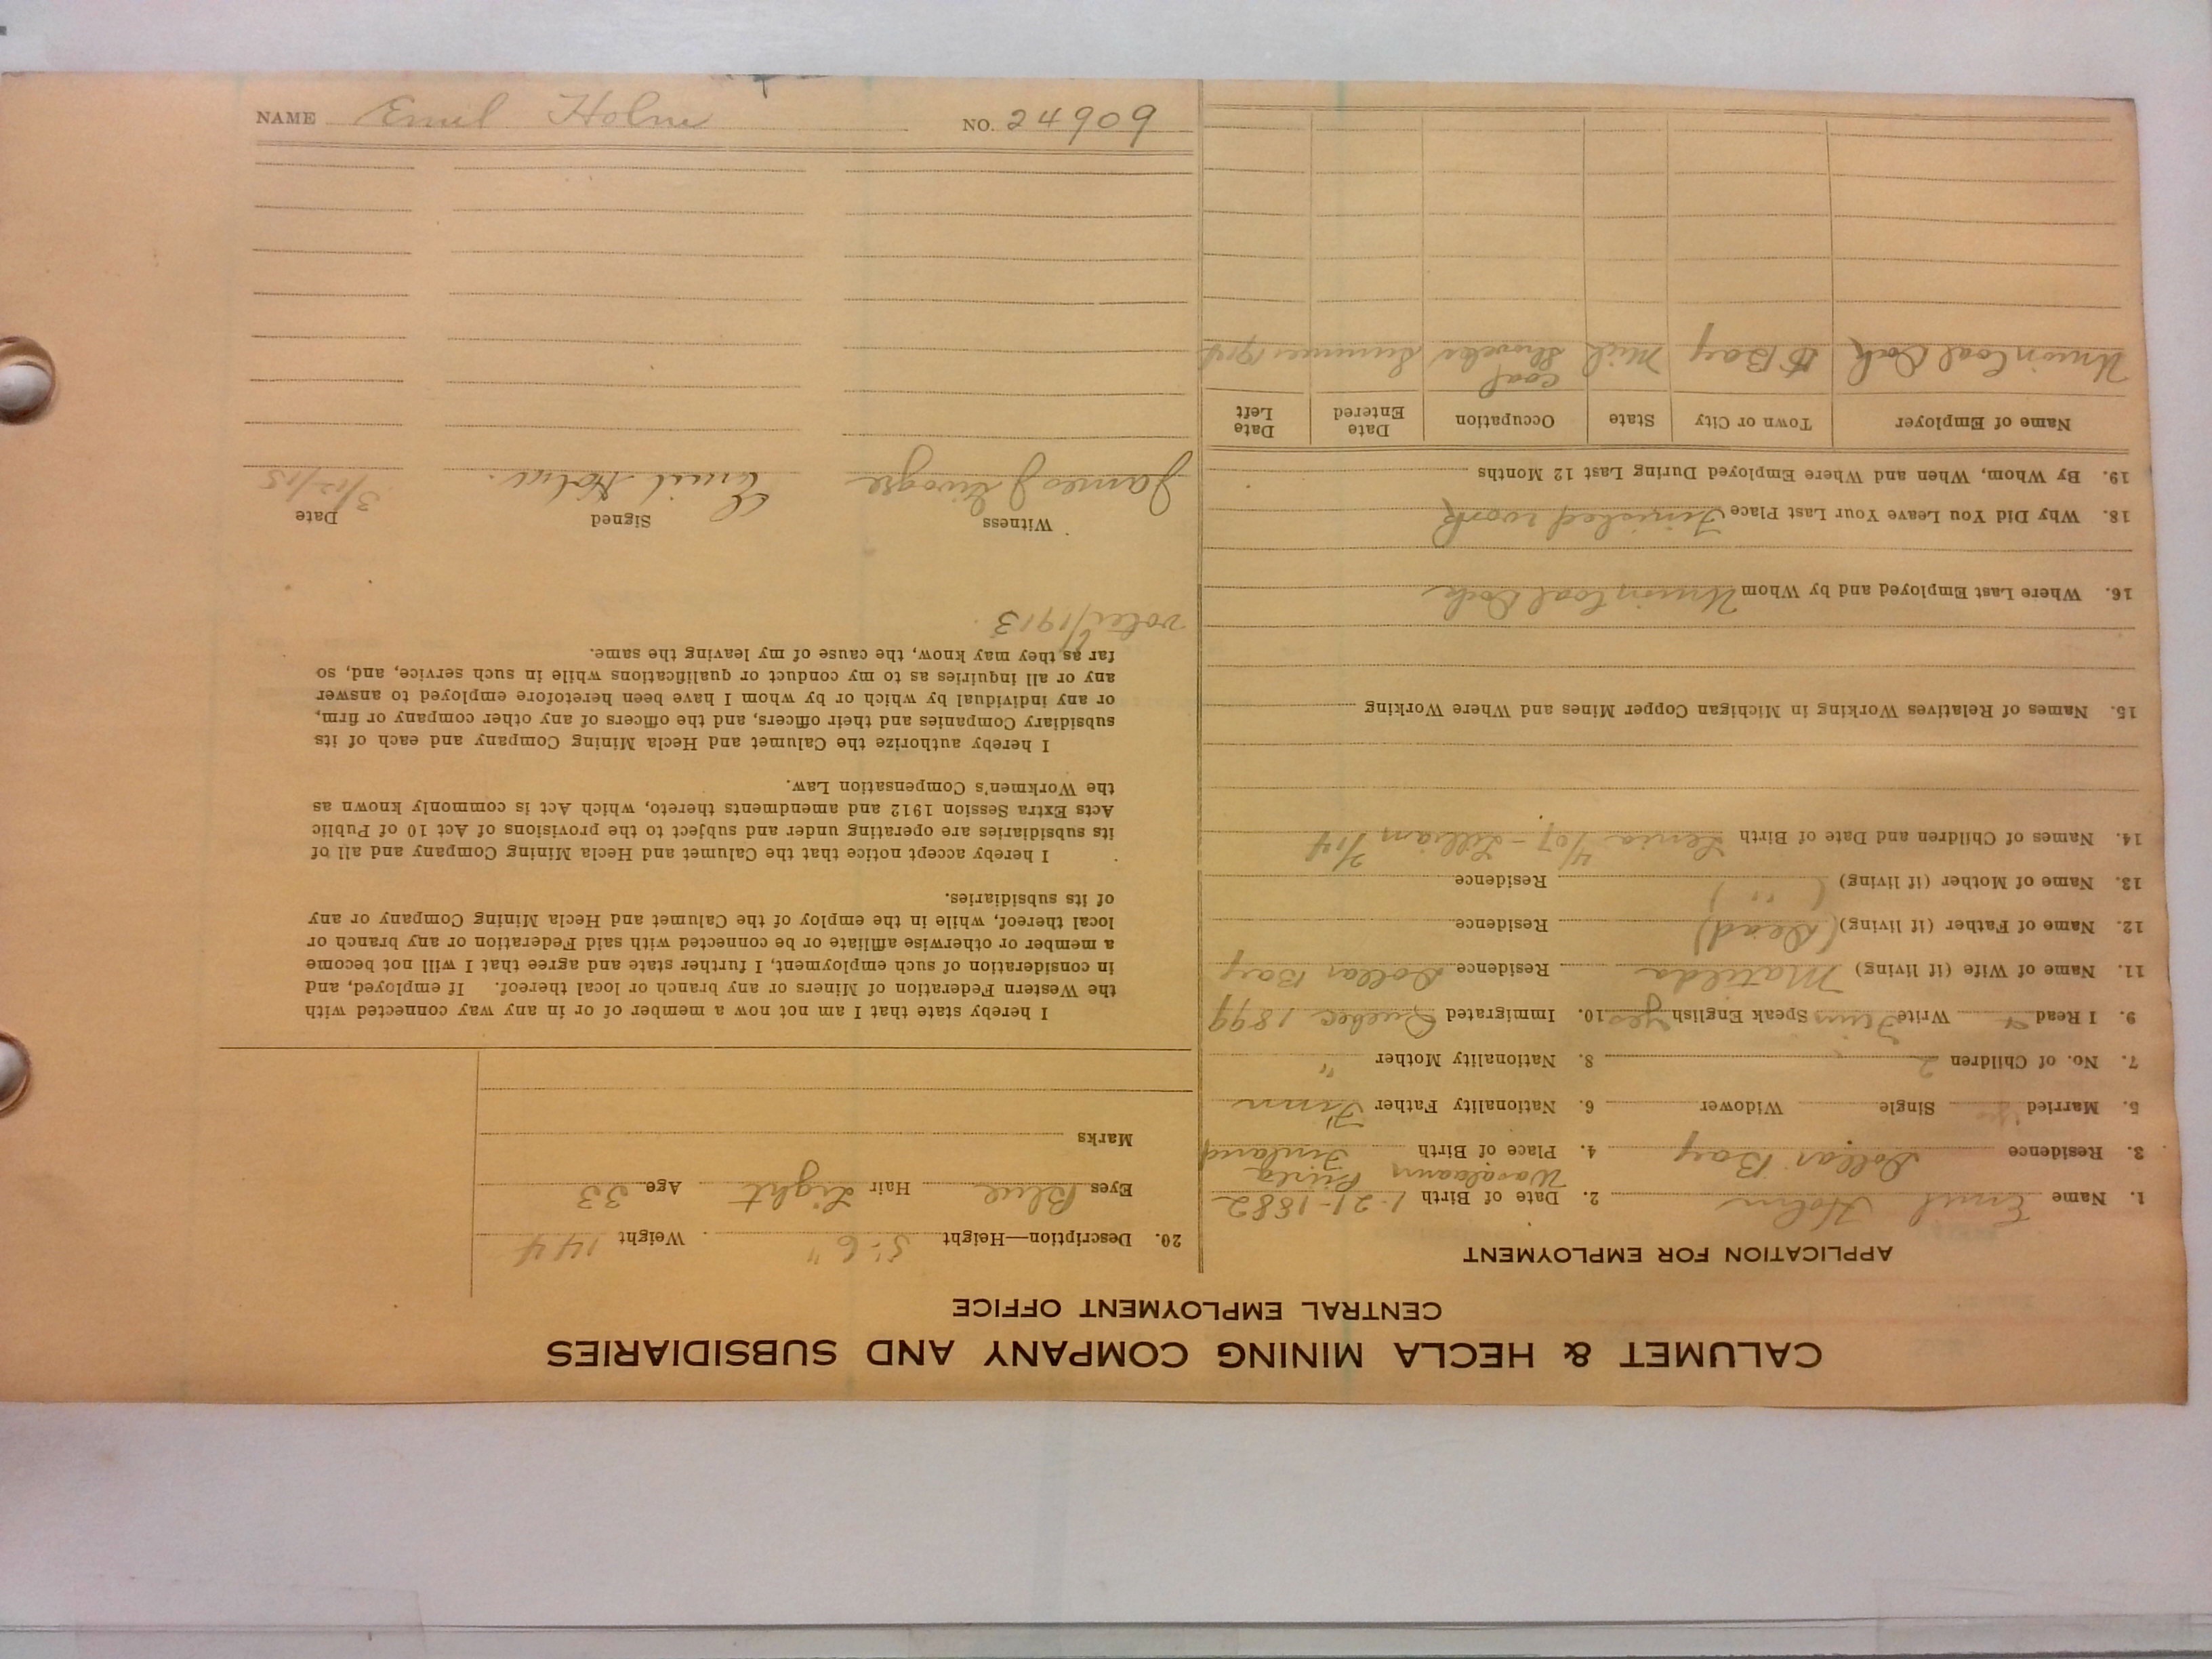 CALUMET & HECLA MINING COMPANY AND SUBSIDIARIES
CENTRAL EMPLOYMENT OFFICE
APPLICATION FOR EMPLOYMENT
1. Name Emil Holm 2. Date of Birth 1-21-1882
3. Residence Dollar Bay 4. Place of Birth Finland
5. Married Yes Single Widower 6. Nationality Father Finn
7. No. of Children 2 8. Nationality Mother "
9. I Read Write Finn Speak English yes 10. Immigrated Quebec 1899
11. Name of Wife (if living) Matilda Residence Dollar Bay
12. Name of Father (if living) (Dead) Residence
13. Name of Mother (if living) ( " ) Residence
14. Names of Children and Date of Birth 4/07 - Lillian 2/14
15. Names of Relatives Working in Michigan Copper Mines and Where Working
16. Where Last Employed and by Whom Union Coal Dock
18. Why Did You Leave Your Last Place Finished work
19. By Whom, When and Where Employed During Last 12 Months
Name of Employer Town or City State Occupation Date Entered Date Left
Union Coal Dock Bay Mich Coal Shoveler Summer 1914
20. Description—Height 5' 6" Weight 144
Eyes Blue Hair Light Age 33
Marks
I hereby state that I am not now a member of or in any way connected with
the Western Federation of Miners or any branch or local thereof. If employed, and
in consideration of such employment, I further state and agree that I will not become
a member or otherwise affiliate or be connected with said Federation or any branch or
local thereof, while in the employ of the Calumet and Hecla Mining Company or any
of its subsidiaries.
I hereby accept notice that the Calumet and Hecla Mining Company and all of
its subsidiaries are operating under and subject to the provisions of Act 10 of Public
Acts Extra Session 1912 and amendments thereto, which Act is commonly known as
the Workmen's Compensation Law.
I hereby authorize the Calumet and Hecla Mining Company and each of its
subsidiary Companies and their officers, and the officers of any other company or firm,
or any individual by which or by whom I have been heretofore employed to answer
any or all inquiries as to my conduct or qualifications while in such service, and, so
far as they may know, the cause of my leaving the same.
1913
Witness Signed Date
James J Emil Holm 3/12/15
NAME Emil Holm NO. 24909